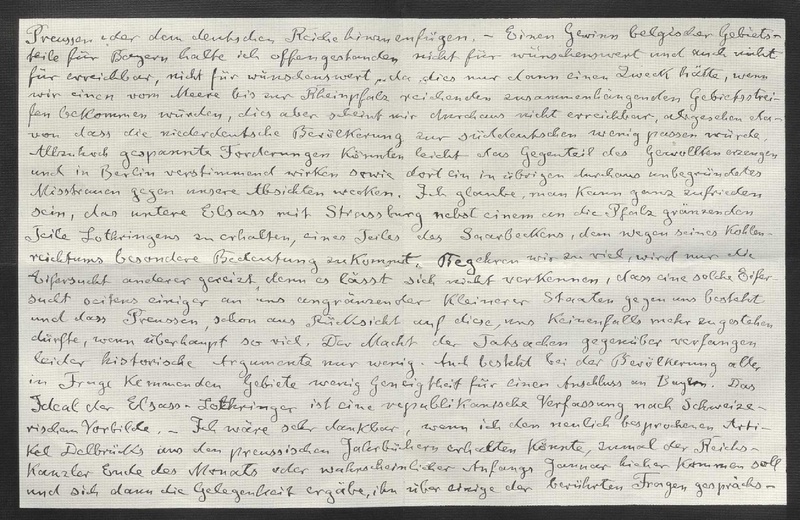 Preussen oder dem deutschen Reiche hinzuzufügen. – Einen Gewinn belgischer Gebiets-
teile für Bayern halte ich offengestanden nicht für wünschenswert und auch nicht
für erreichbar, nicht für wünschenswert, da dies nur dann einen Zweck hätte, wenn
wir einen vom Meere bis zur Rheinpfalz reichenden zusammenhängenden Gebietsstrei-
fen bekommen würden, dies aber scheint mir durchaus nicht erreichbar, abgesehen da-
von dass die niederdeutsche Bevölkerung zur süddeutschen wenig passen würde.
Allzuhoch gespannte Forderungen könnten leicht das Gegenteil des Gewollten erzeugen
und in Berlin verstimmend wirken sowie dort ein im übrigen durchaus unbegründetes
Misstrauen gegen unsere Absichten wecken. Ich glaube, man kann ganz zufrieden
sein, das untere Elsass mit Strassburg nebst einem an die Pfalz gränzenden
Teile Lothringens zu erhalten, eines Teiles des Saarbeckens, dem wegen seines Kohlen-
reichtums besondere Bedeutung zukommt. Begehren wir zu viel, wird nur die
Eifersucht anderer gereizt, denn es lässt sich nicht verkennen, dass eine solche Eifer-
sucht seitens einiger an uns angränzender kleinerer Staaten gegen uns besteht
und dass Preussen, schon aus Rücksicht auf diese, uns keinenfalls mehr zugestehen
dürfte, wenn überhaupt so viel. Der Macht der Tatsachen gegenüber verfangen
leider historische Argumente nur wenig. Auch besteht bei der Bevölkerung aller
in Frage kommenden Gebiete wenig Geneigtheit für einen Anschluss an Bayern. Das
Ideal der Elsass-Lothringer ist eine republikanische Verfassung nach Schweize-
rischem Vorbilde. – Ich wäre sehr dankbar, wenn ich den neulich besprochenen Arti-
kel Delbrücks aus den preussischen Jahrbüchern erhalten könnte, zumal der Reichs-
kanzler Ende des Monats oder wahrscheinlicher Anfangs Januar hieher kommen soll
und sich dann die Gelegenheit ergäbe, ihn über einige der berührten Fragen gesprächs-